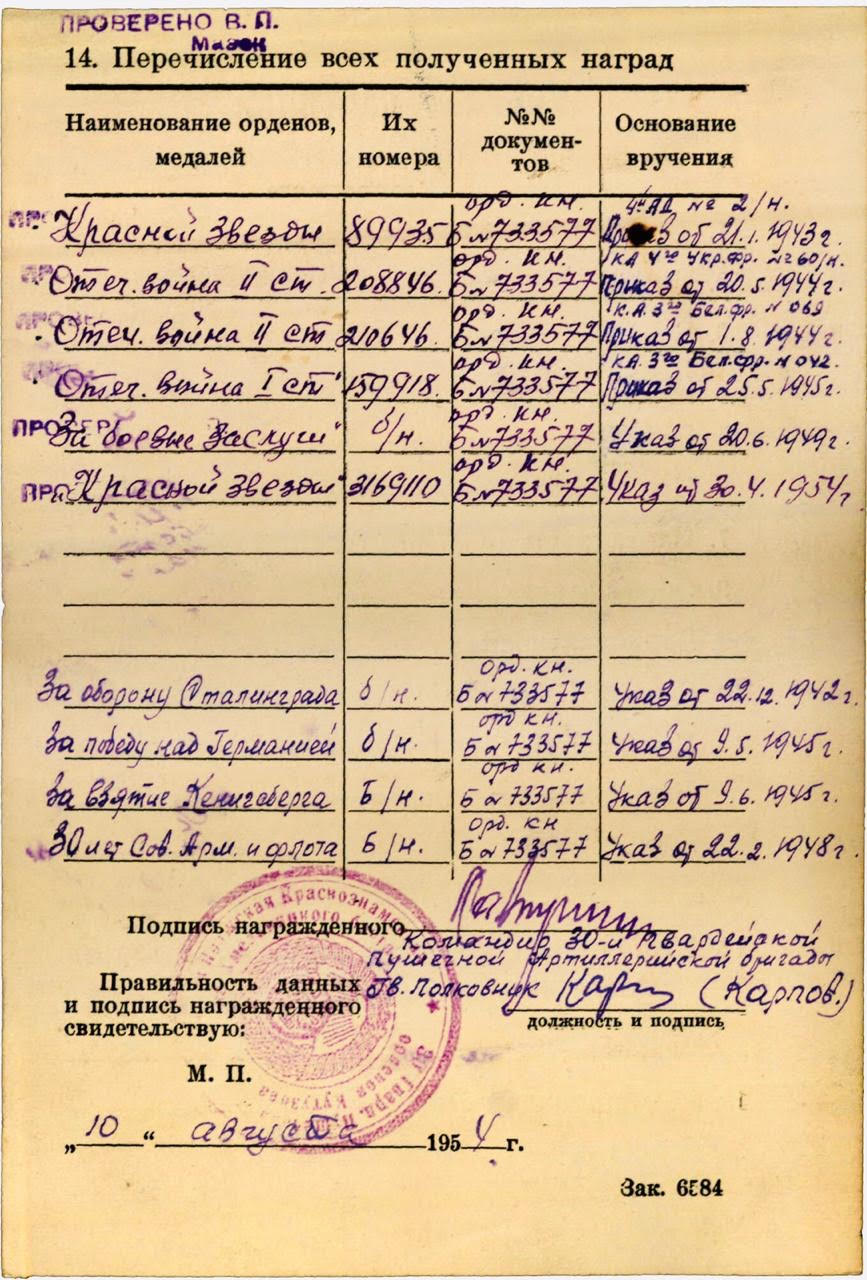 ПРОВЕРЕНО В. П.
Мазок
14. Перечисление всех полученных наград
Наименование орденов, медалей
Их номера
№№ документов
Основание вручения
Красной Звезды 89935 орд. кн. Б№733577 4й АД № 2/н. Приказ от 21.1.1943г.
Отеч. война II ст. 208846. орд. кн. Б№733577 КА 4го Укр.фр. №260/н. Приказ от 20.5.1944г.
Отеч. война II ст 210646. орд. кн. Б№733577 К.А. 3го Бел.фр. №069 Приказ от 1.8.1944г.
Отеч. война I ст" 159918. орд. кн. Б№733577 КА. 3го Бел.фр. №042. Приказ от 25.5.1945г.
ПРОВЕР
За боевые заслуги" б/н. орд. кн. Б№733577 Указ от 20.6.1949г.
ПРО
"Красной Звезды" 3169110 орд. кн. Б№733577 Указ от 30.4.1954г
За оборону Сталинграда б/н. орд. кн. Б№733577 Указ от 22.12.1942г.
За победу над Германией б/н. орд кн. Б№733577 Указ от 9.5.1945г.
За взятие Кенигсберга Б/н. орд кн. Б№733577 Указ от 9.6.1945г.
30 лет Сов. Арм. и флота Б/н. орд. кн Б№733577 Указ от 22.2.1948г.
Подпись награжденного
Командир 30-й Гвардейской
Пушечной Артиллерийской бригады
Гв. Полковник (Карпов.)
должность и подпись
Правильность данных
и подпись награжденного
свидетельствую:
М. П.
„10“ августа 1954 г.
Зак. 6584